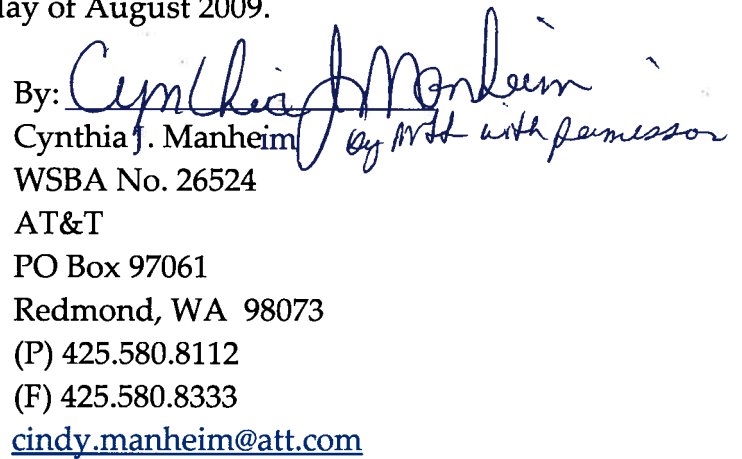 day of August 2009.
By: Cynthia J Manheim
Cynthia J. Manheim by with permission
WSBA No. 26524
AT&T
PO Box 97061
Redmond, WA 98073
(P) 425.580.8112
(F) 425.580.8333
cindy.manheim@att.com